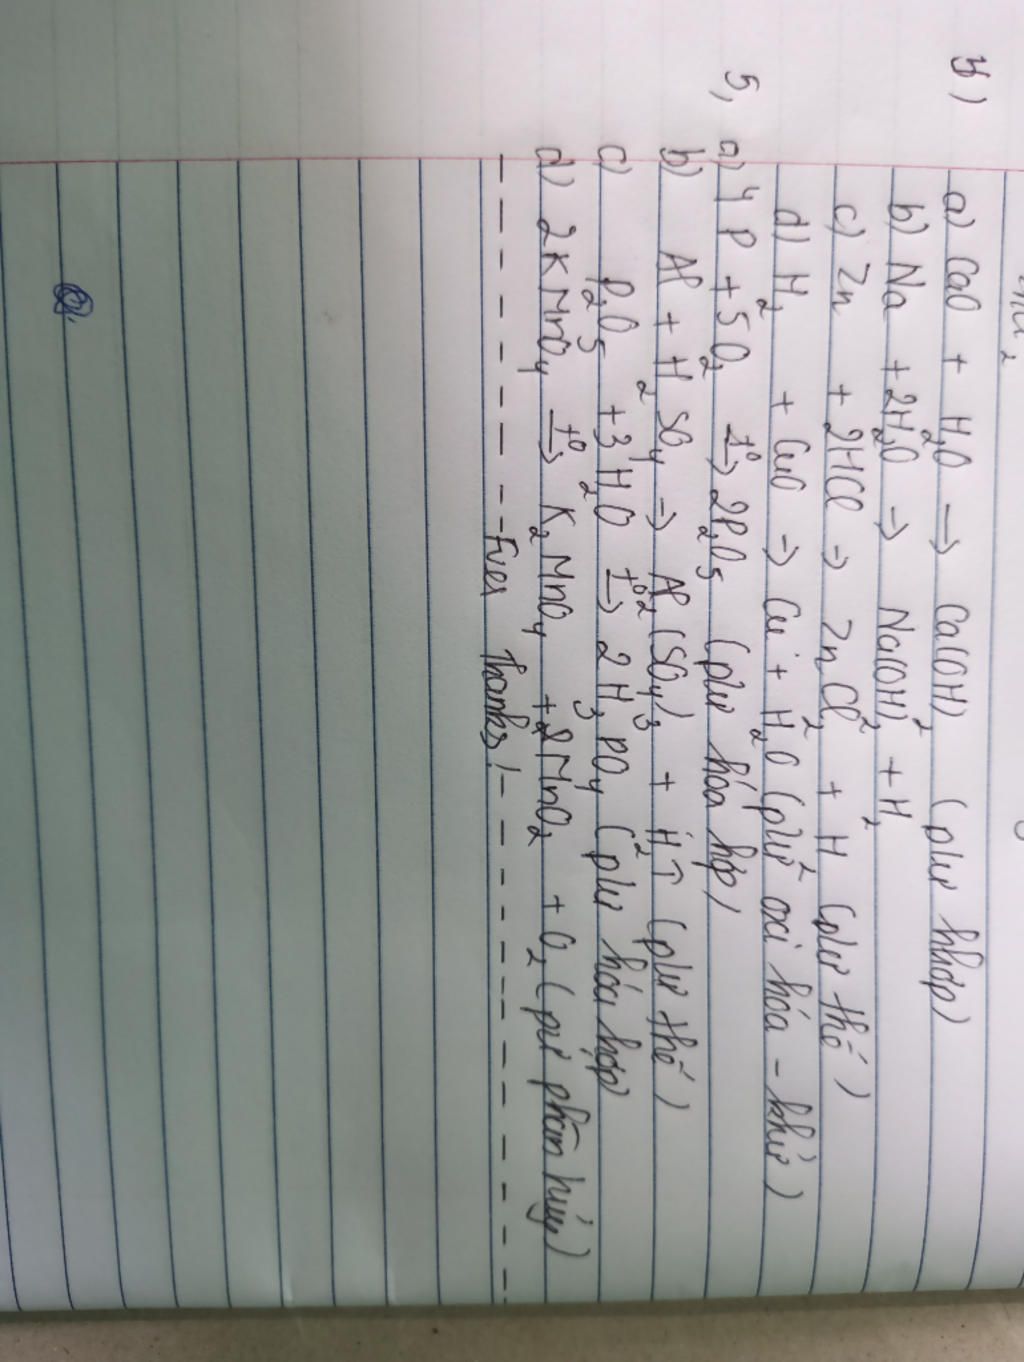 4)
a) CaO + H₂O → Ca(OH)₂ (pư hhợp)
b) Na + 2H₂O → Na(OH)₂ + H₂
c) Zn + 2HCl → ZnCl₂ + H₂ (pư thế)
d) H₂ + CuO → Cu + H₂O (pư oxi hóa - khử)
5, a) 4P + 5O₂ t°→ 2P₂O₅ (pư hóa hợp)
b) Al + H₂SO₄ → Al₂(SO₄)₃ + H₂↑ (pư thế)
c) P₂O₅ + 3H₂O t°→ 2H₃PO₄ (pư hóa hợp)
d) 2KMnO₄ t°→ K₂MnO₄ + 2MnO₂ + O₂ (pư phân hủy)
thanks!